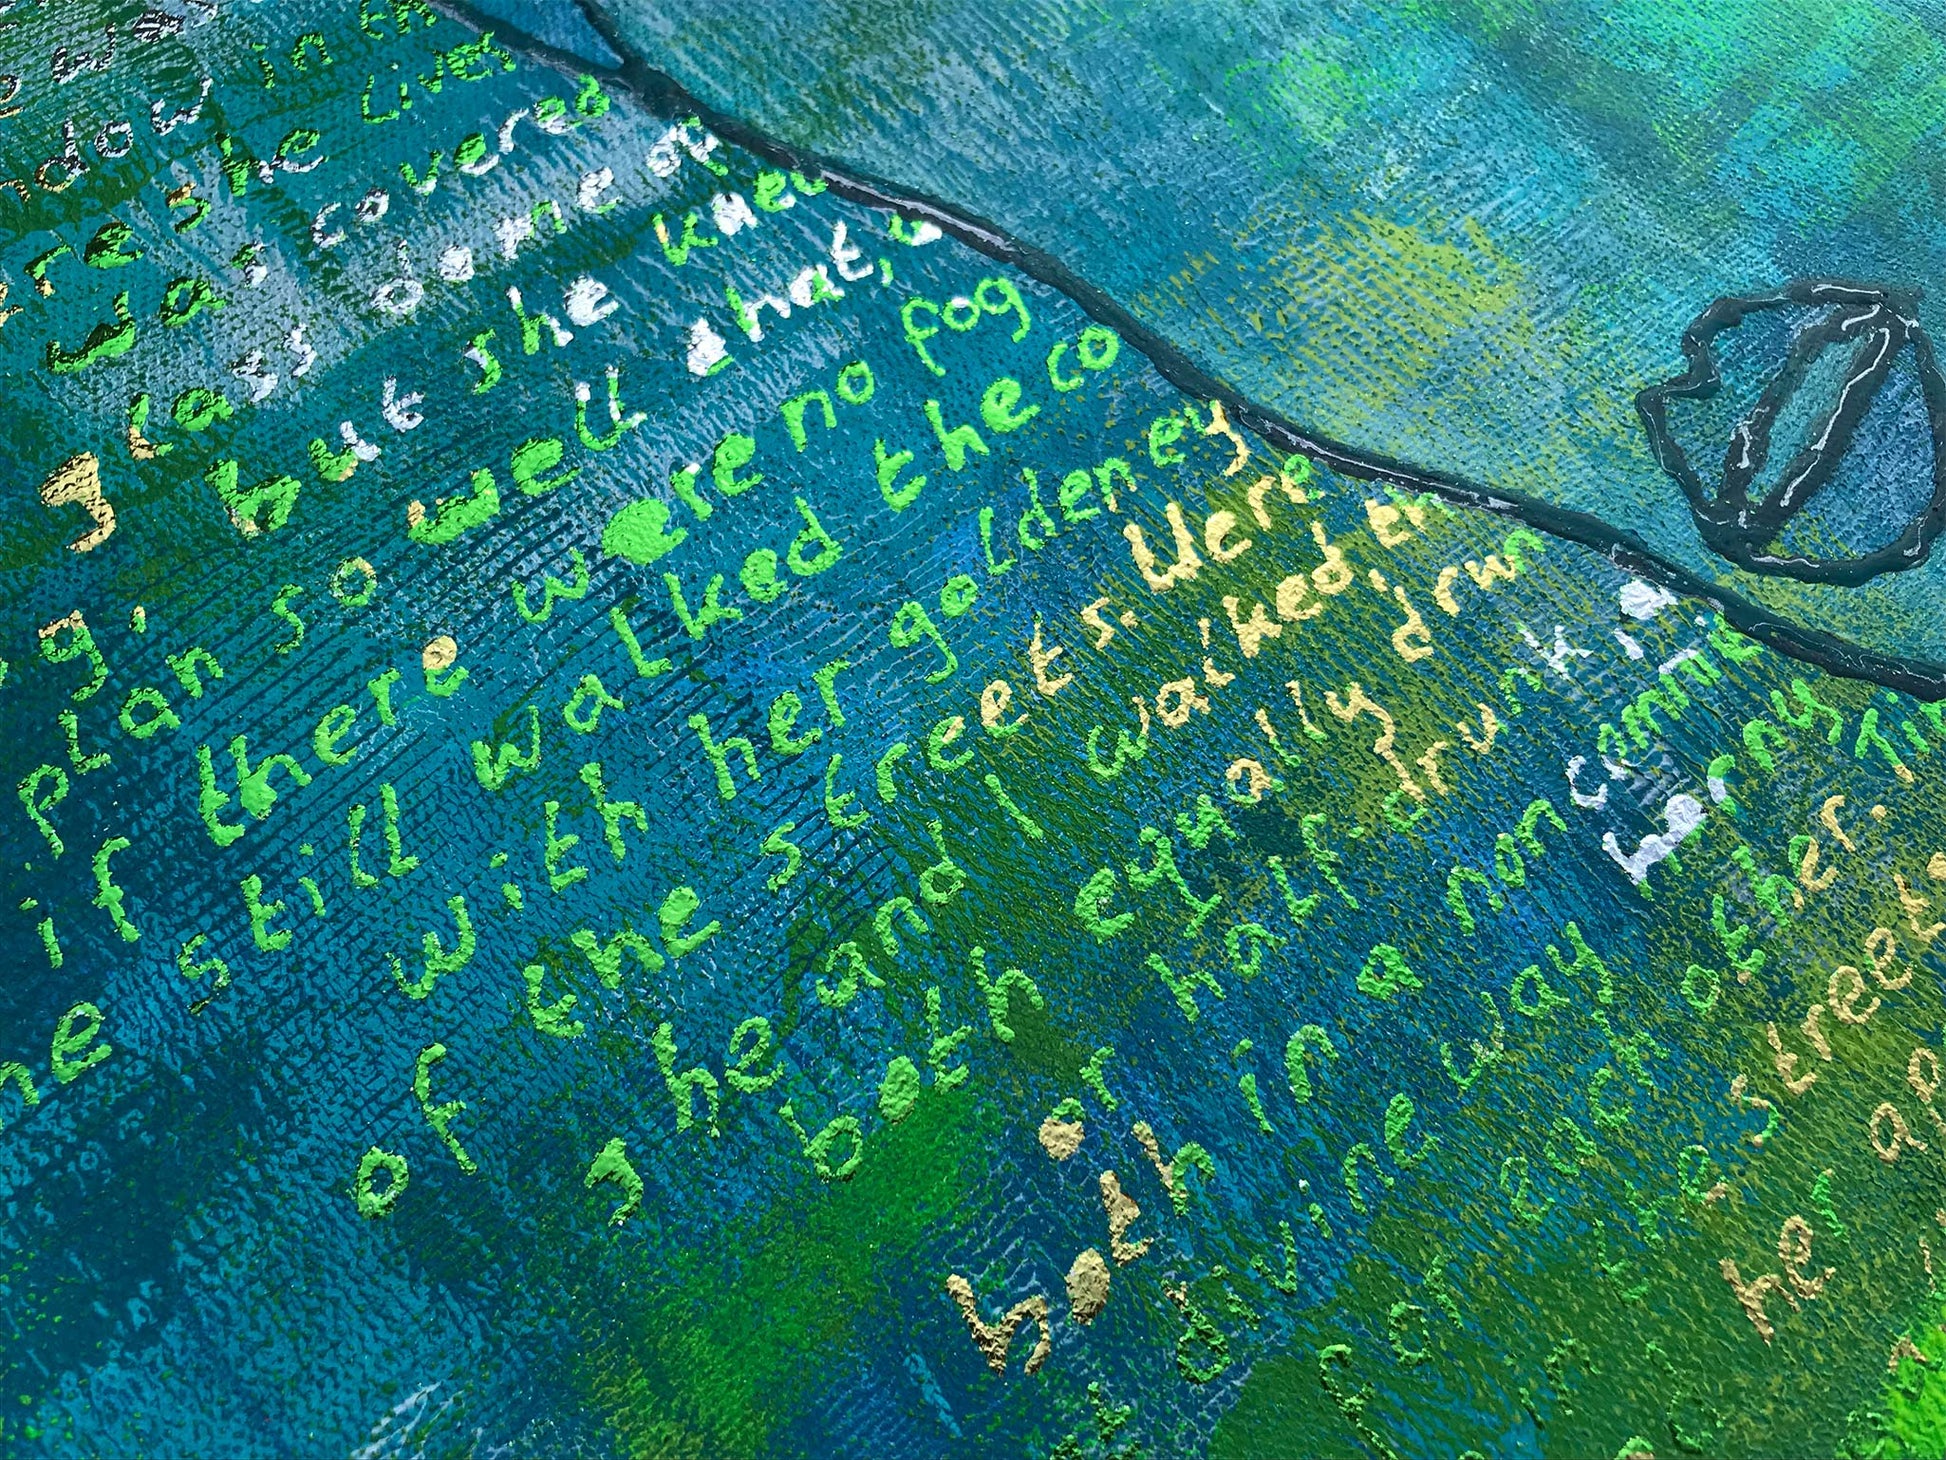 ndow in th
ere she lives
was covered
glass dome of
g, but she knew
plan so well that, u
if there were no fog
he still walked the co
with her golden ey
of the streets. Were
she and I walked th
both eyually drw
or half-drunk in
in a non cosmic
divine way
for each other. Tin
street
he, ap